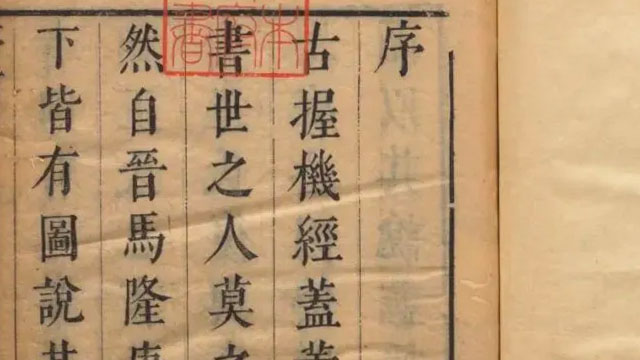 序
古握機經蓋
書世之人莫
然自晉馬隆
下皆有圖說